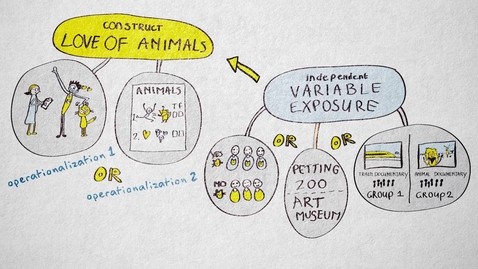 CONSTRUCT
LOVE OF ANIMALS
ANIMALS
T F
1.
2.
operationalization 1
OR
operationalization 2
independent
VARIABLE
EXPOSURE
OR
OR
YES
NO
PETTING
ZOO
ART
MUSEUM
TRAIN DOCUMENTARY
GROUP 1
ANIMAL DOCUMENTARY
GROUP 2